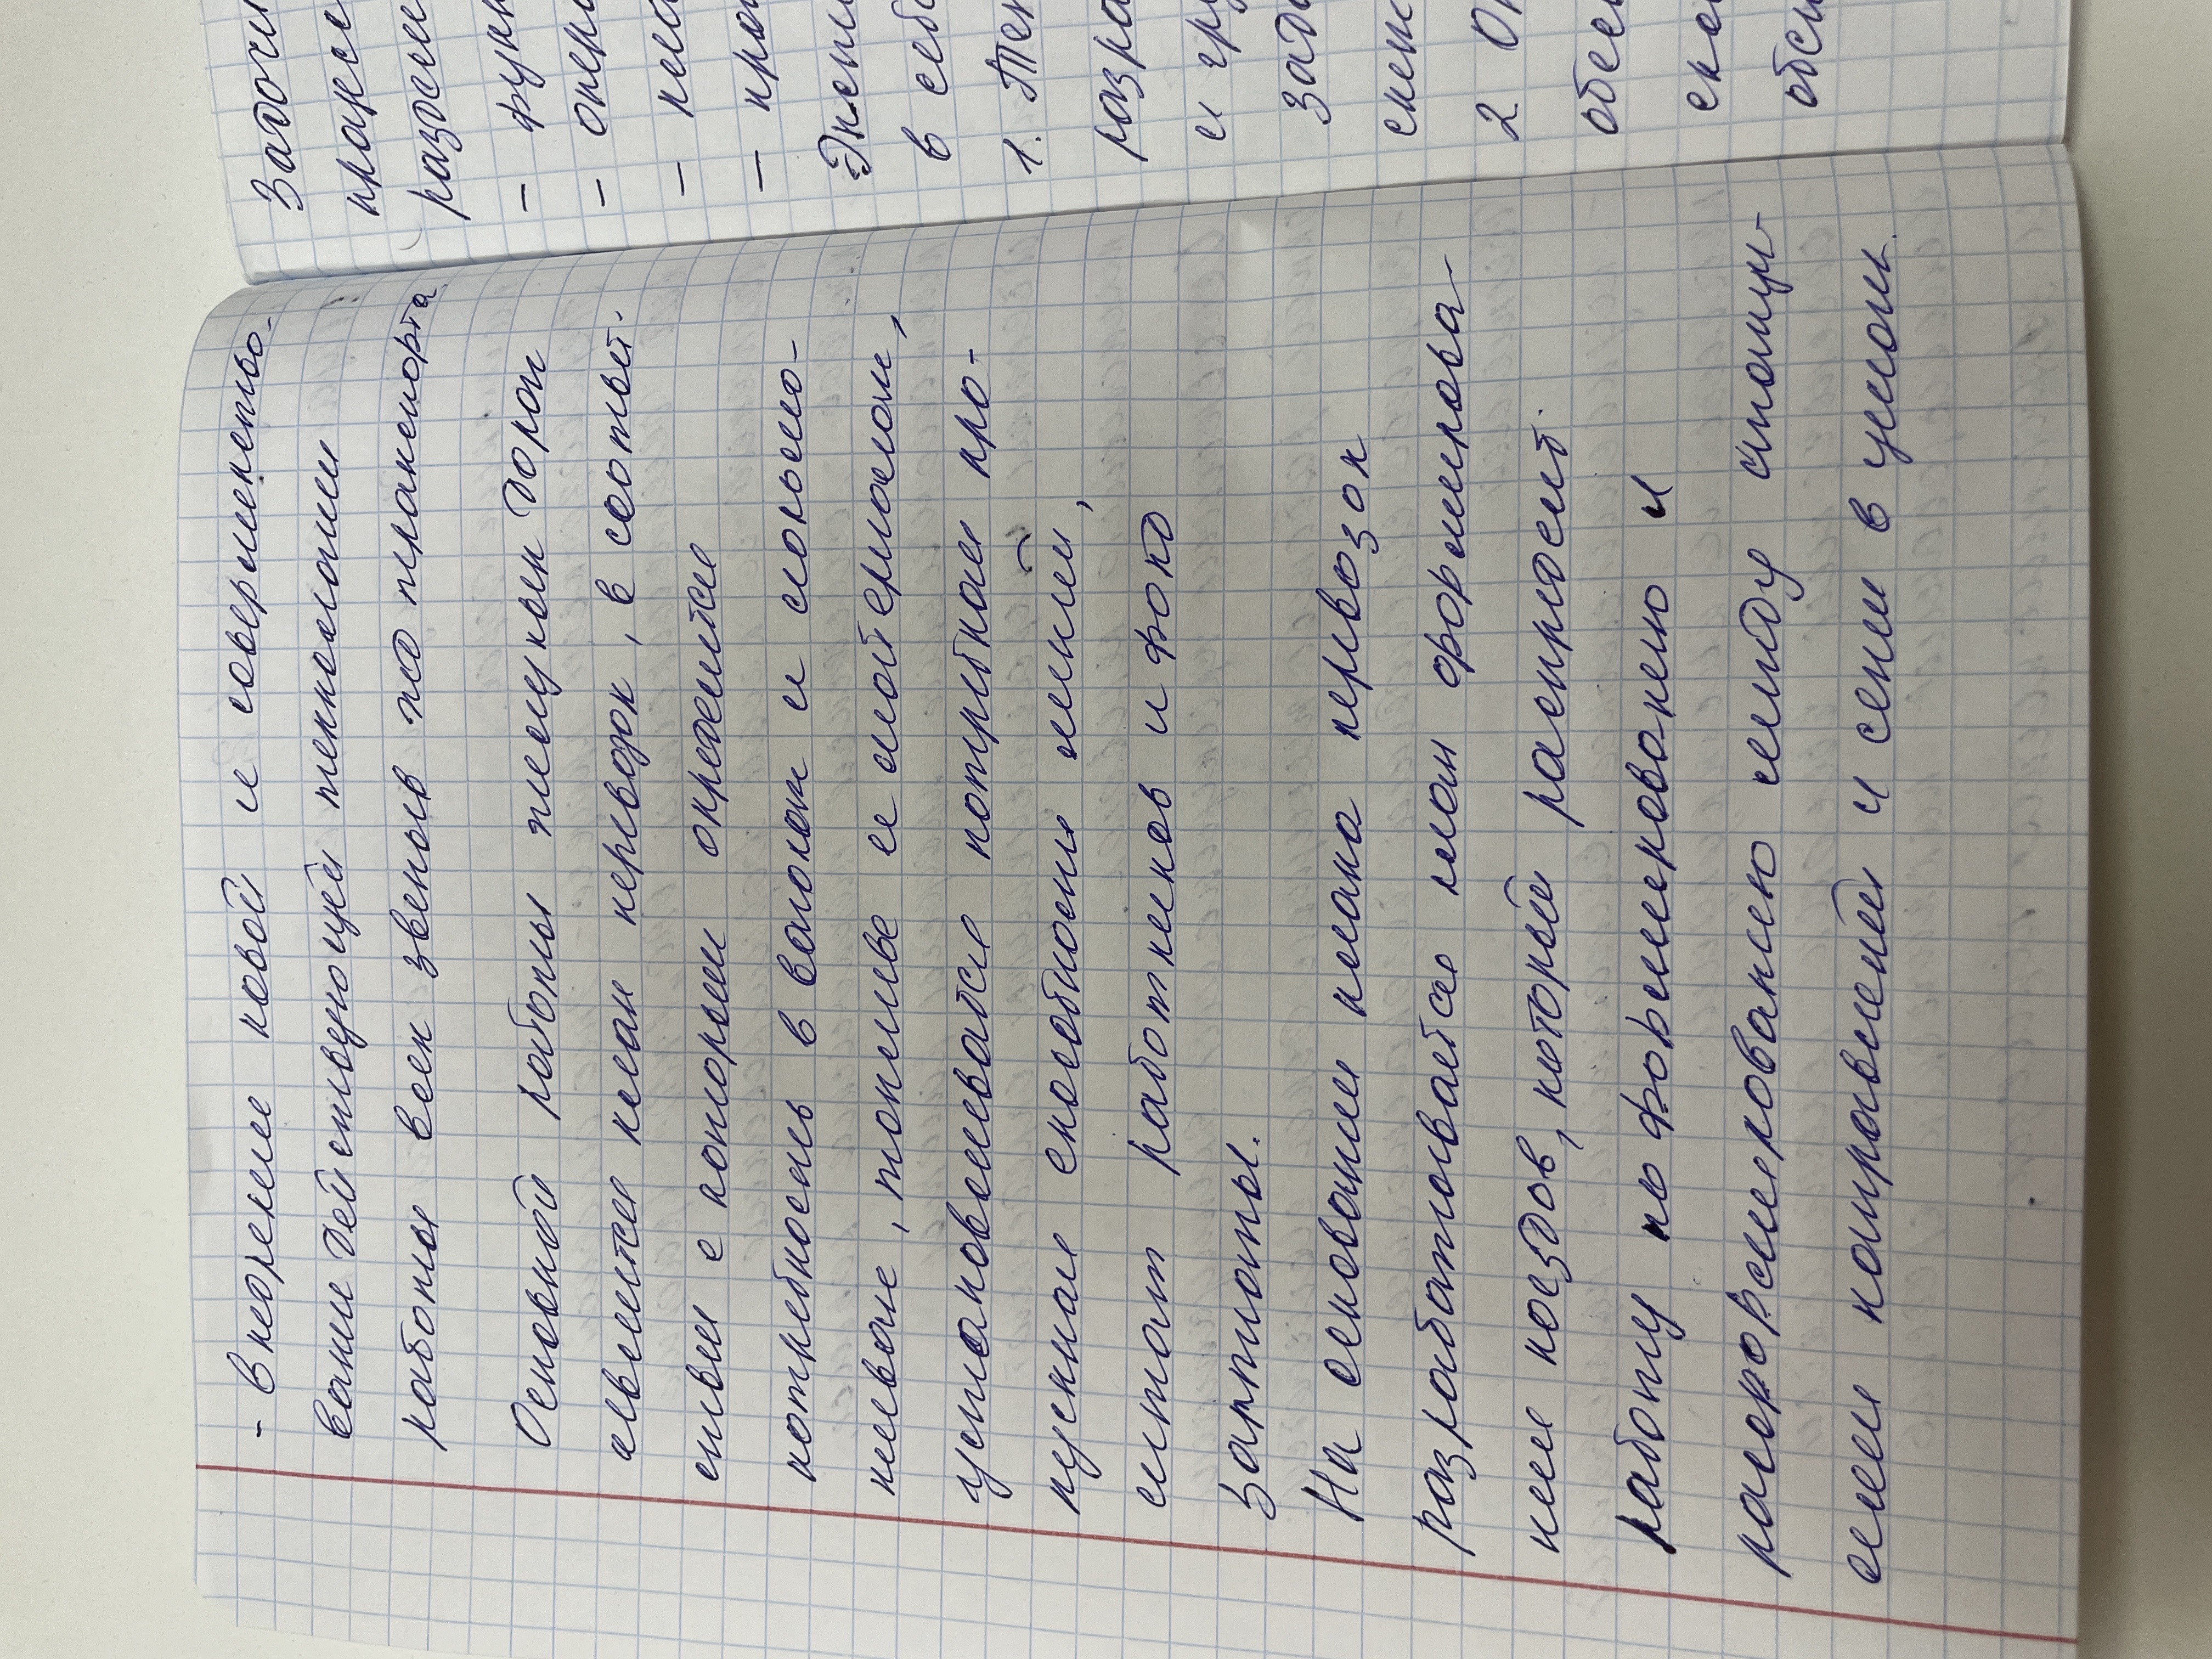 - внедрение новой и совершенство-
вании действующей технологии
работы всех звеньев жд транспорта
Основной работы железных дорог
является план перевозок, в соответ.
ствии с которым определится
потребность в вагонах и локомо-
тивах, топливе и материалах,
устанавливается потребная про-
пускная способность линий,
штат работников и фонд
зарплаты.
На основании плана перевозок
разрабатывается план формирова-
ния поездов, который распредел.
работу по формированию и
расформированию между станци-
ями направлений и сети в целом.
Задачи
- функ
- опера
-
- про
в себ
1. Тех
разра
и гру
зада
2 Оп
обесп
обесп